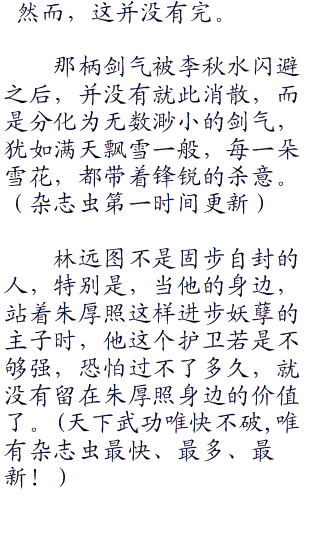 然而，这并没有完。
那柄剑气被李秋水闪避
之后，并没有就此消散，而
是分化为无数渺小的剑气，
犹如满天飘雪一般，每一朵
雪花，都带着锋锐的杀意。
（杂志虫第一时间更新）
林远图不是固步自封的
人，特别是，当他的身边，
站着朱厚照这样进步妖孽的
主子时，他这个护卫若是不
够强，恐怕过不了多久，就
没有留在朱厚照身边的价值
了。(天下武功唯快不破,唯
有杂志虫最快、最多、最
新！）